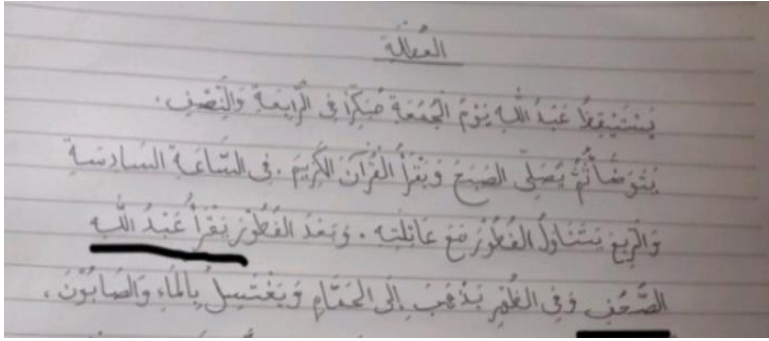 العطلة
يَسْتَيْقِظُ عَبْدُ اللهِ يَوْمَ الْجُمُعَةِ مُبَكِّرًا فِي الرَّابِعَةِ وَالنِّصْفِ.
يَتَوَضَّأُ ثُمَّ يُصَلِّي الصُّبْحَ وَيَقْرَأُ القُرْآنَ الكَرِيمَ. فِي السَّاعَةِ السَّادِسَةِ
وَالرُّبْعِ يَتَنَاوَلُ الفُطُوْرَ مَعَ عَائِلَتِهِ. وَبَعْدَ الفُطُوْرِ يَقْرَأُ عَبْدُ اللهِ
الصُّحُفَ وَفِي الظُّهْرِ يَذْهَبُ إِلَى الحَمَّامِ وَيَغْتَسِلُ بِالمَاءِ وَالصَّابُوْنَ.